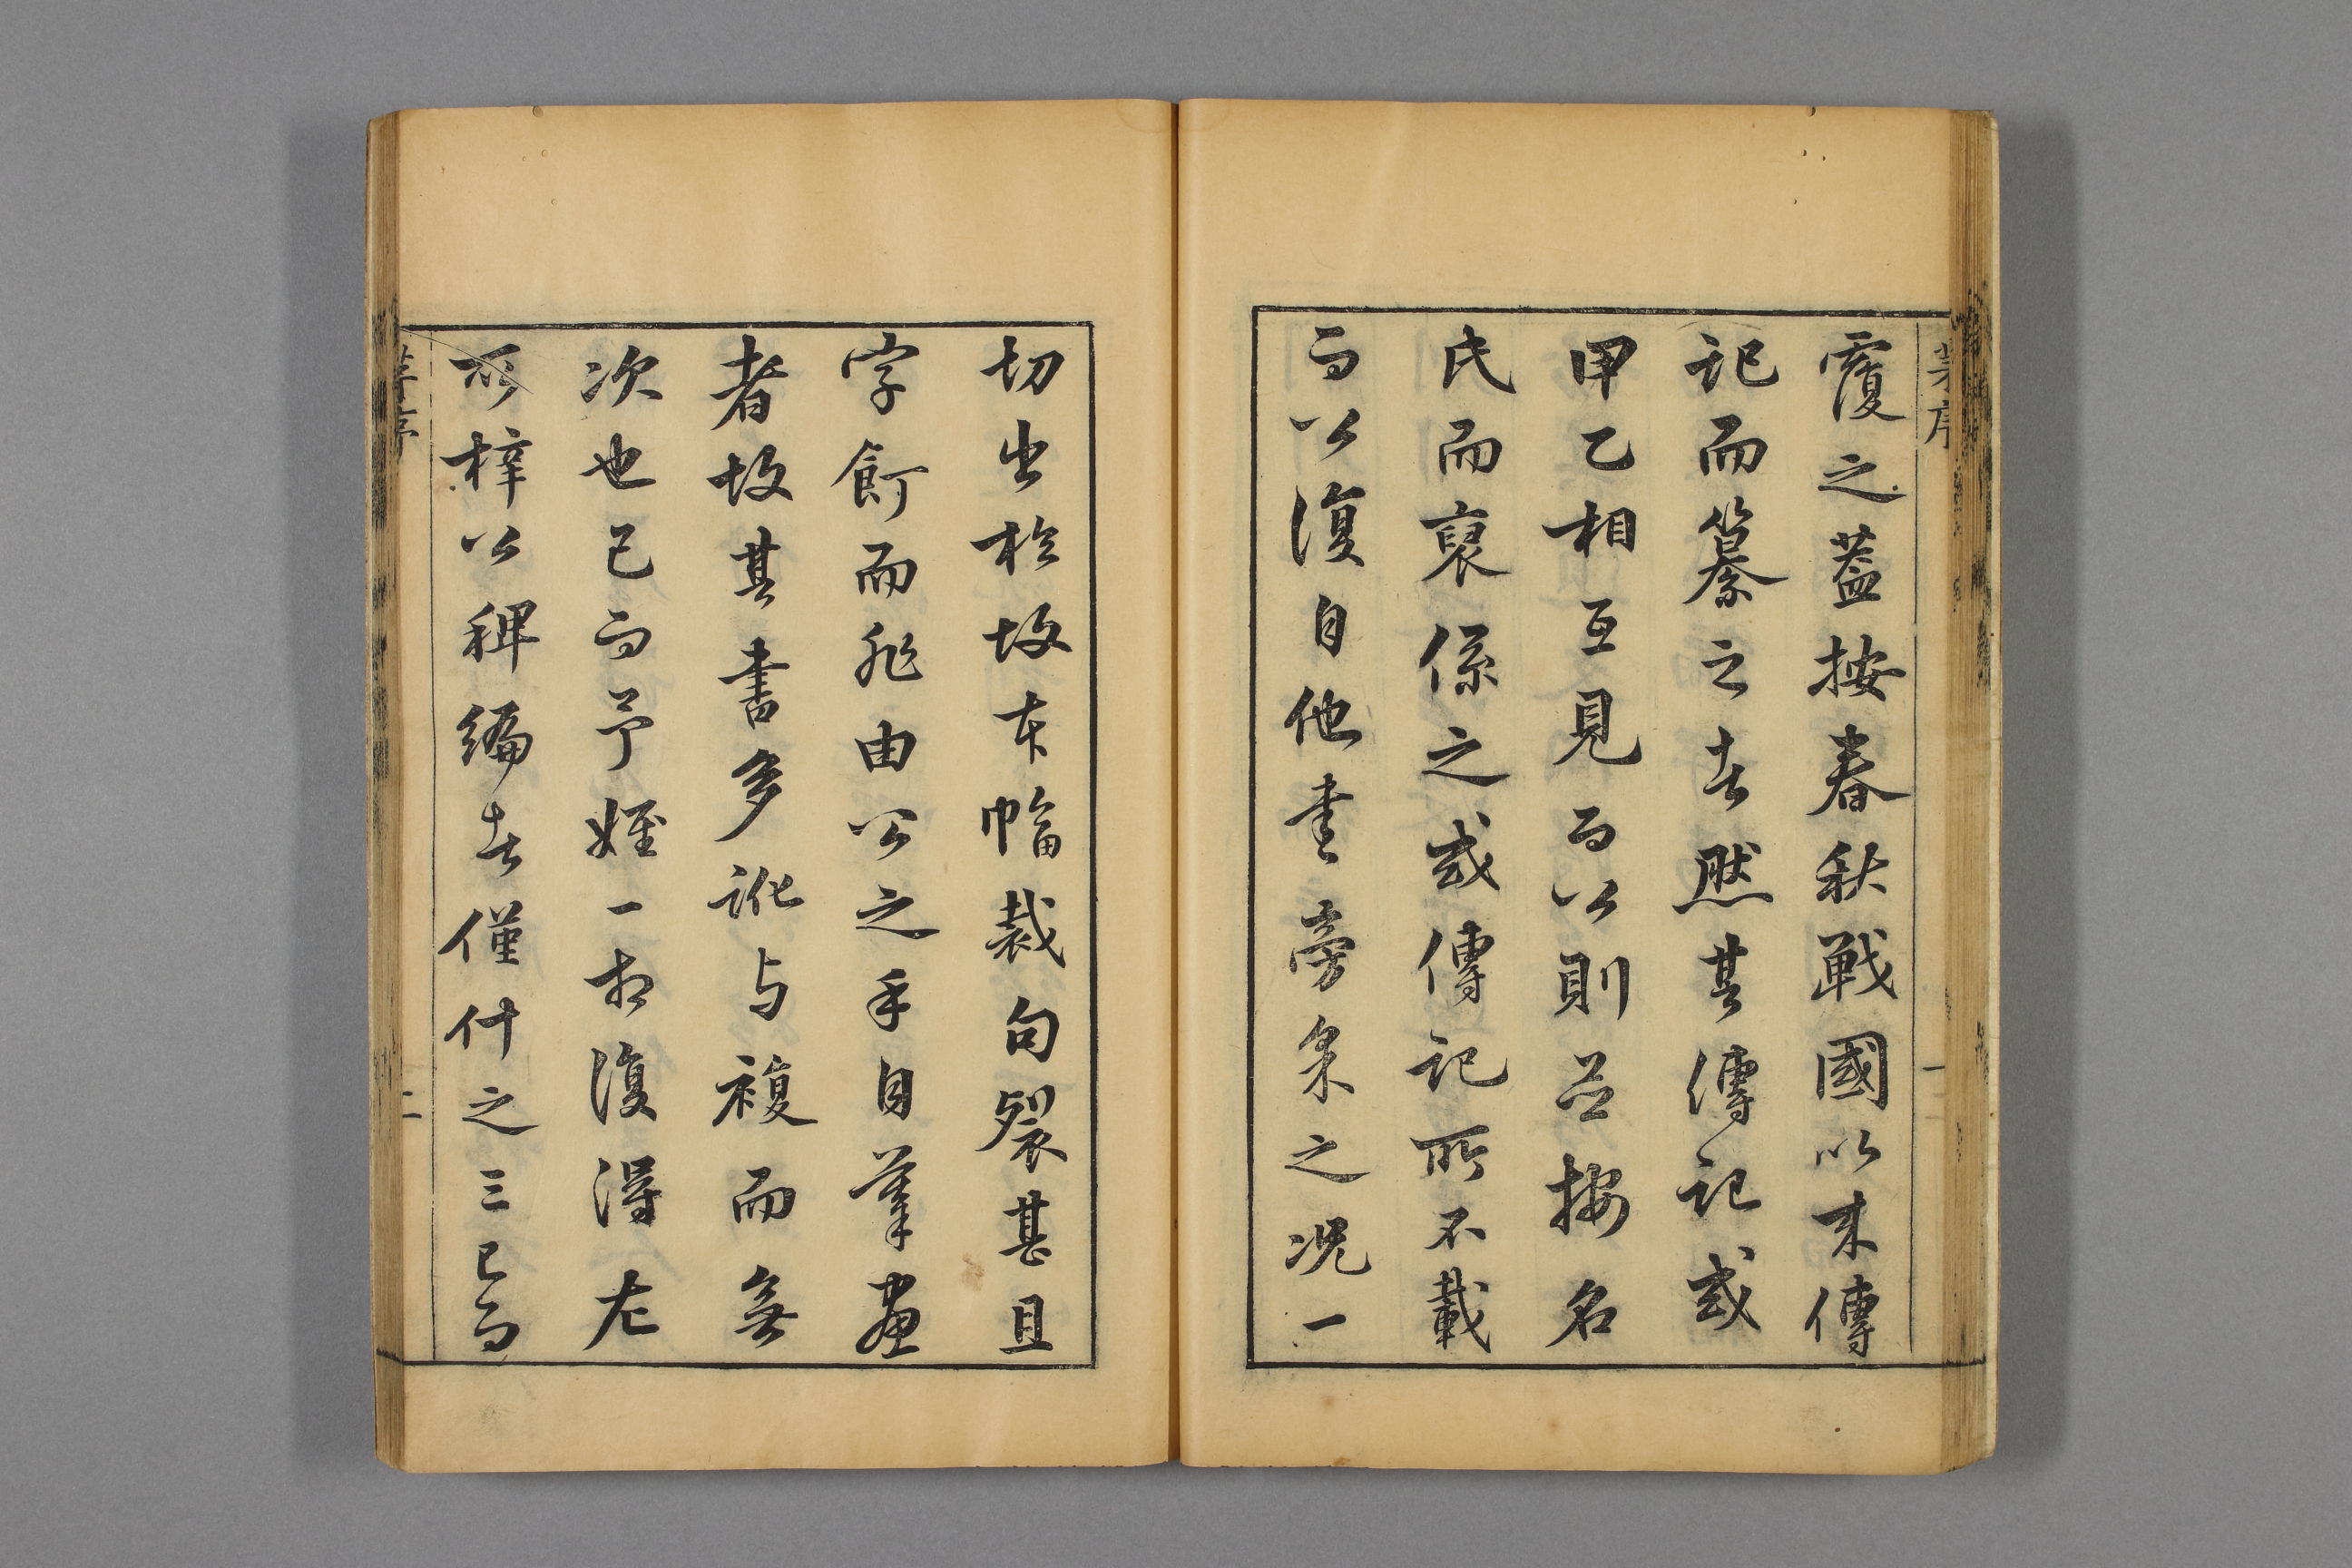 覆之蓋按春秋戰國以來傳
記而纂之者然其傳記或
甲乙相互見而公則並按名
氏而裒係之或傳記所不載
而公復自他書旁采之况一
切出於故本幅裁句裂甚且
字飣而非由公之手自筆畫
者故其書多訛与複而無
次也已而予姪一相復得左
所梓公稗編者僅什之三已而
序
一
序
二